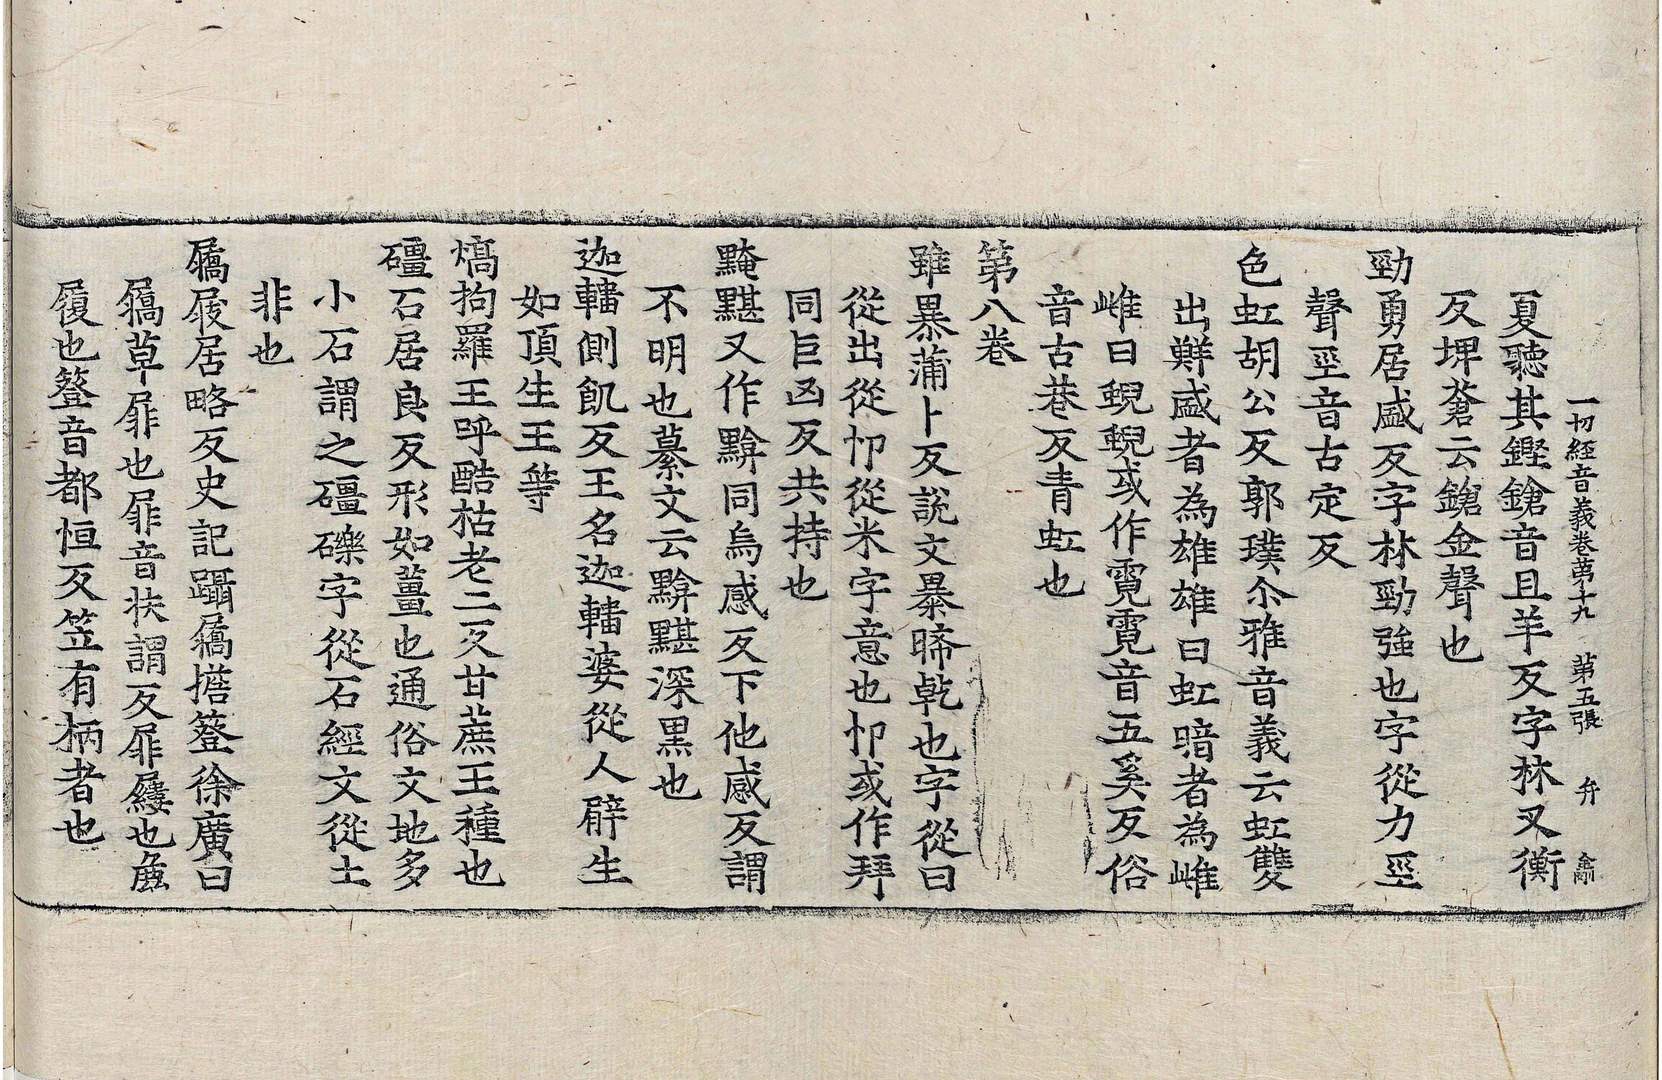 一切經音義卷第十九　第五張　弁
夏聽其鏗鎗音且羊反字林又衡
反埤蒼云鎗金聲也
勁勇居盛反字林勁強也字從力巠
聲巠音古定反
色虹胡公反郭璞尒雅音義云虹雙
出鮮盛者為雄雄曰虹暗者為雌
雌曰蜺蜺或作霓霓音五奚反俗
音古巷反青虹也
第八卷
雖暴蒲卜反說文暴晞乾也字從日
從出從𠬞從米字意也𠬞或作拜
同巨凶反共持也
黤黮又作黭同烏感反下他感反謂
不明也纂文云黭黮深黑也
迦轖側飢反王名迦轖婆從人辟生
如頂生王等
熇拘羅王呼酷枯老二反甘蔗王種也
礓石居良反形如薑也通俗文地多
小石謂之礓礫字從石經文從土
非也
屩屐居略反史記躡屩擔簦徐廣曰
屩草屝也屝音扶謂反屝屨也麁
履也簦音都恒反笠有柄者也